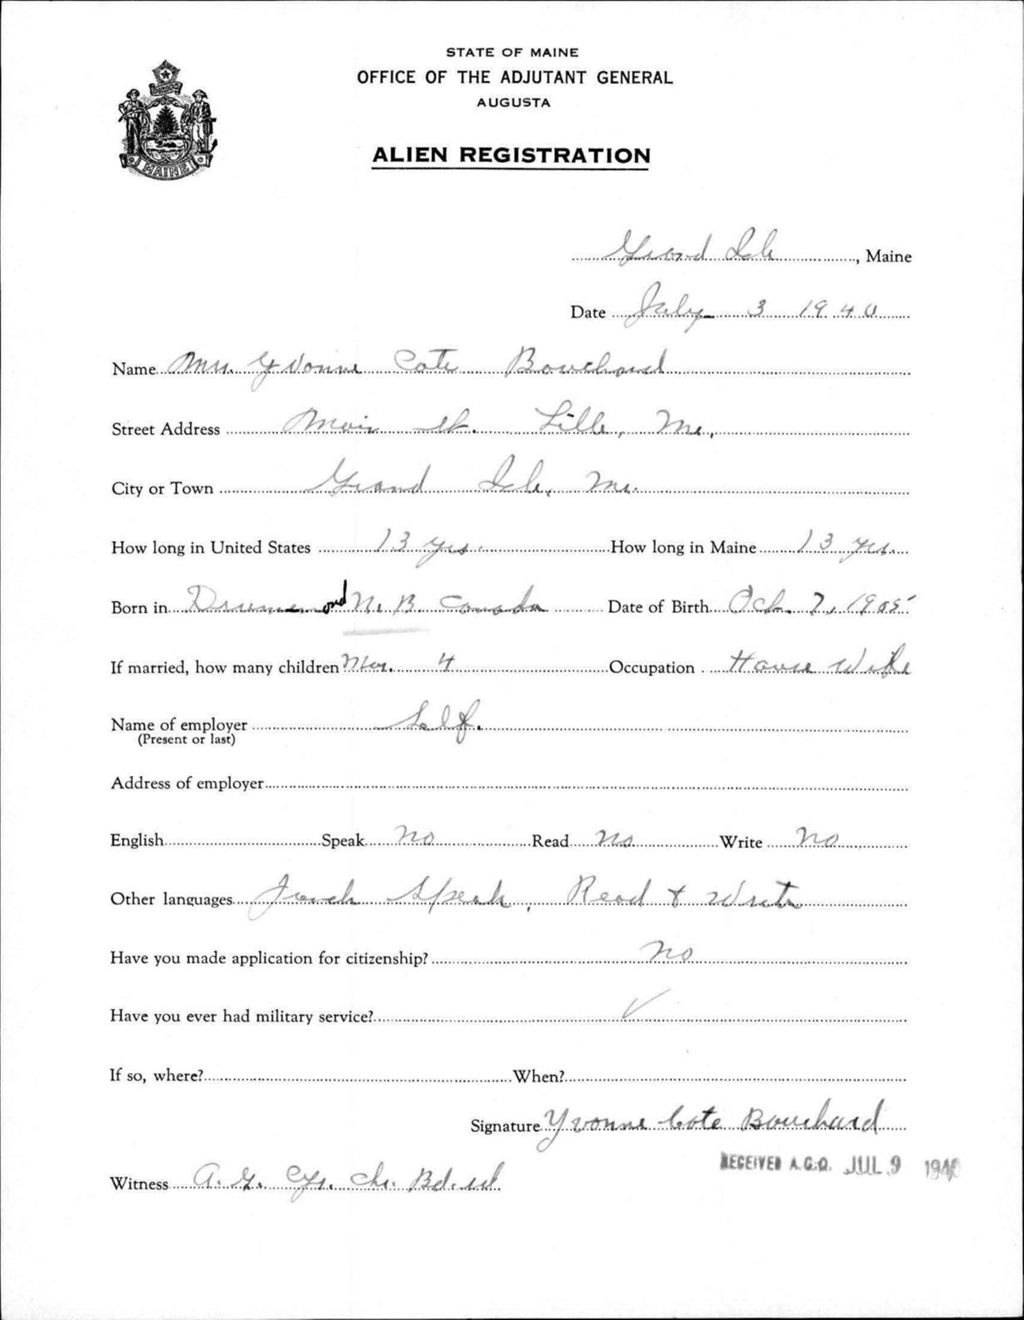 STATE OF MAINE
OFFICE OF THE ADJUTANT GENERAL
AUGUSTA
ALIEN REGISTRATION
MAINE
Grand Isle, Maine
Date July 3 1940
Name Mrs. Yvonne Cote Bouchard
Street Address Main St. Lille, Me.,
City or Town Grand Isle, Me.
How long in United States 13 yrs. How long in Maine 13 yrs.
Born in Drummond N. B. Canada Date of Birth Oct. 7, 1905
If married, how many children Mar. 4 Occupation House Wife
Name of employer Self.
(Present or last)
Address of employer
English Speak No Read No Write No
Other languages French Speak, Read & Write
Have you made application for citizenship? No
Have you ever had military service? ✓
If so, where? When?
Signature Yvonne Cote Bouchard
RECEIVED A.G.O. JUL 9 1940
Witness A. G.